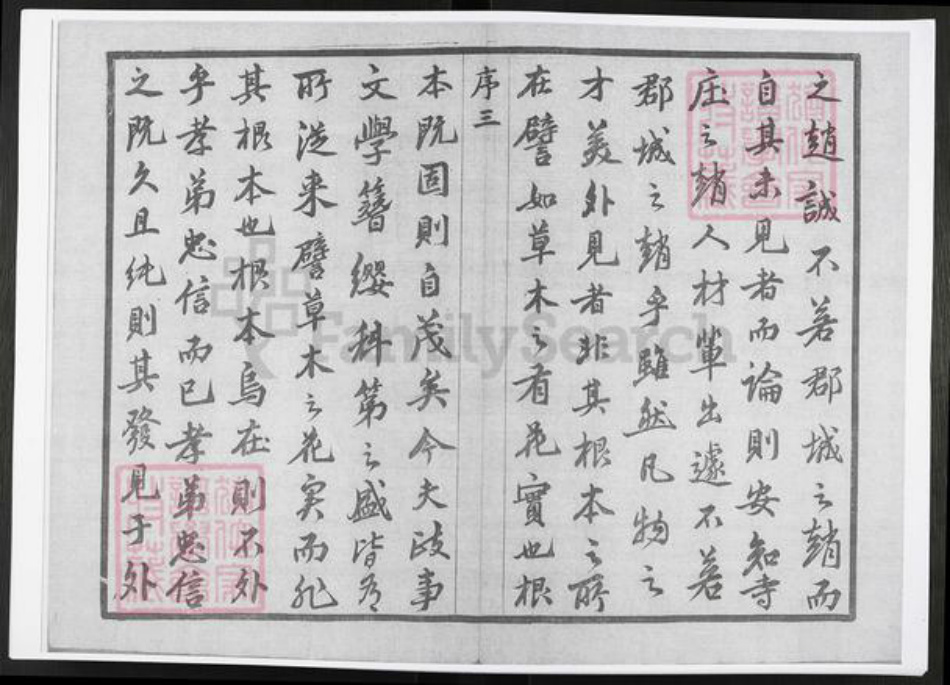 之趙誠不若郡城之趙而
自其未見者而論則安知寺
庄之趙人材輩出遽不若
郡城之趙乎雖然凡物之
才美外見者非其根本之所
在譬如草木之有花實也根
序三
本既固則自茂矣今夫政事
文學簪纓科第之盛皆有
所從来譬草木之花实而非
其根本也根本烏在則不外
乎孝弟忠信而已孝弟忠信
之既久且純則其發見于外
FamilySearch